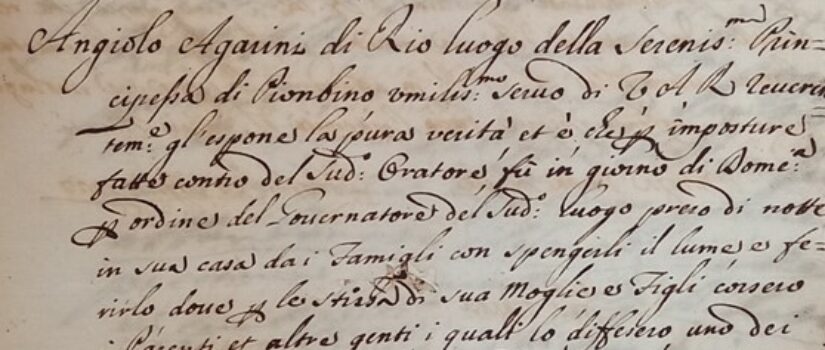 Angiolo Agarini di Rio luogo della Serenis:ma Prin=
cipessa di Pionbino umilis:mo servo di V A R reveren
tem:e gl'espone la pura verità et è che p imposture
fatte contro del Sud:o Oratore fù in giorno di Dome:ca
p ordine del Governatore del Sud:o luogo preso di notte
in sua casa dai Famigli con spengerli il lume e fe=
rirlo dove p le strida di sua Moglie e Figli corsero
i Parenti et altre genti i quali lo difesero uno dei